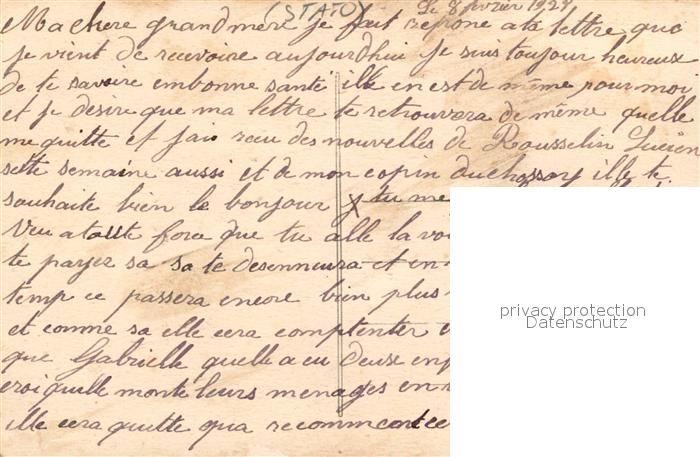 (STATO) Le 8 fevrier 1928
Ma chere grandmere je fait reprone a ta lettre que
je vient de recevoire aujourdhui je suis toujour heureux
de te savoire embonne santé ille en est de même pour moi
et je desire que ma lettre te retrouvera de même quelle
me quitte et jai recu des nouvelles de Rousselin Lucien
sette semaine aussi et de mon copin duchossoy ille te
souhaite bien le bonjour tu me
veu a toute force que tu alle la voi
te payer sa sa te desenneura et en
temp ce passera encore bien plus
et comme sa elle cera comptenter
que Gabrielle quelle a eu deux enf
croi quelle monte leurs menages en
ille cera quitte qua recommence
privacy protection
Datenschutz